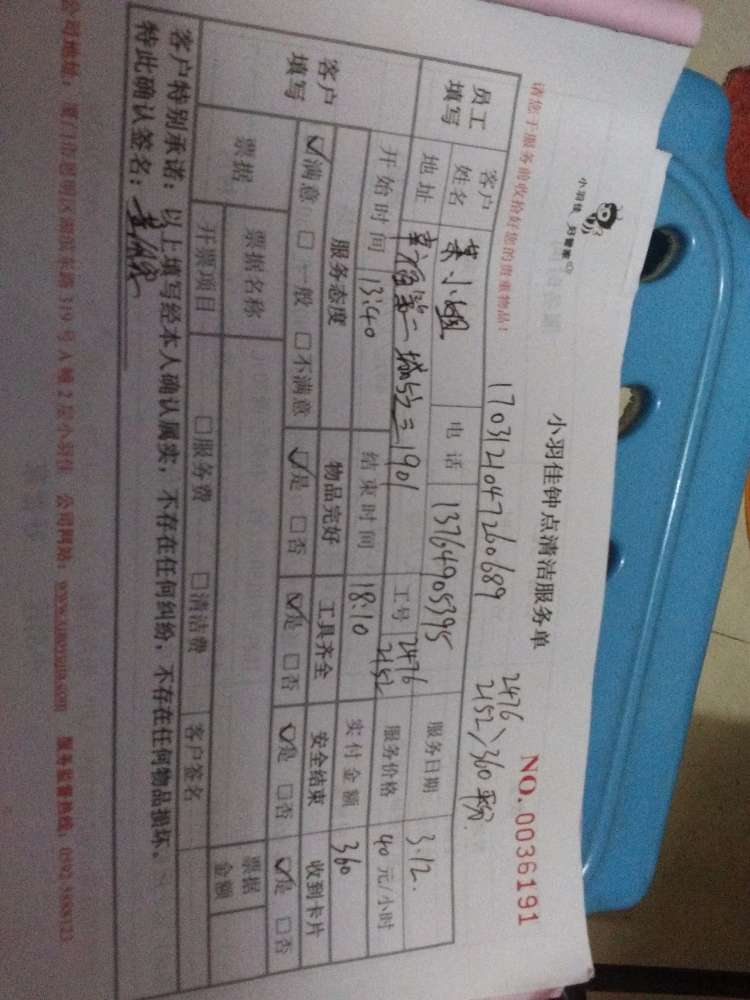 小羽佳 好管家
小羽佳钟点清洁服务单
NO.0036191
请您于服务前收拾好您的贵重物品!
1703121047260689
2476
2152 360 平分
员工填写
客户姓名 小姐 电话 13764905395 服务日期 3.12.
地址 1901 工号 2476 2152 服务价格 40 元/小时
开始时间 13:40 结束时间 18:10 实付金额 360
客户填写
服务态度 物品完好 工具齐全 安全结束 收到卡片
☑满意 □一般 □不满意 ☑是 □否 ☑是 □否 ☑是 □否 ☑是 □否
票据 票据名称 票据金额
开票项目 □服务费 □清洁费 客户签名
客户特别承诺:以上填写经本人确认属实,不存在任何纠纷,不存在任何物品损坏。
特此确认签名:
公司地址:厦门市思明区湖滨东路319号A幢2层小羽佳 公司网站:www.xiaoyujia.com 服务监督热线:0592-5888123